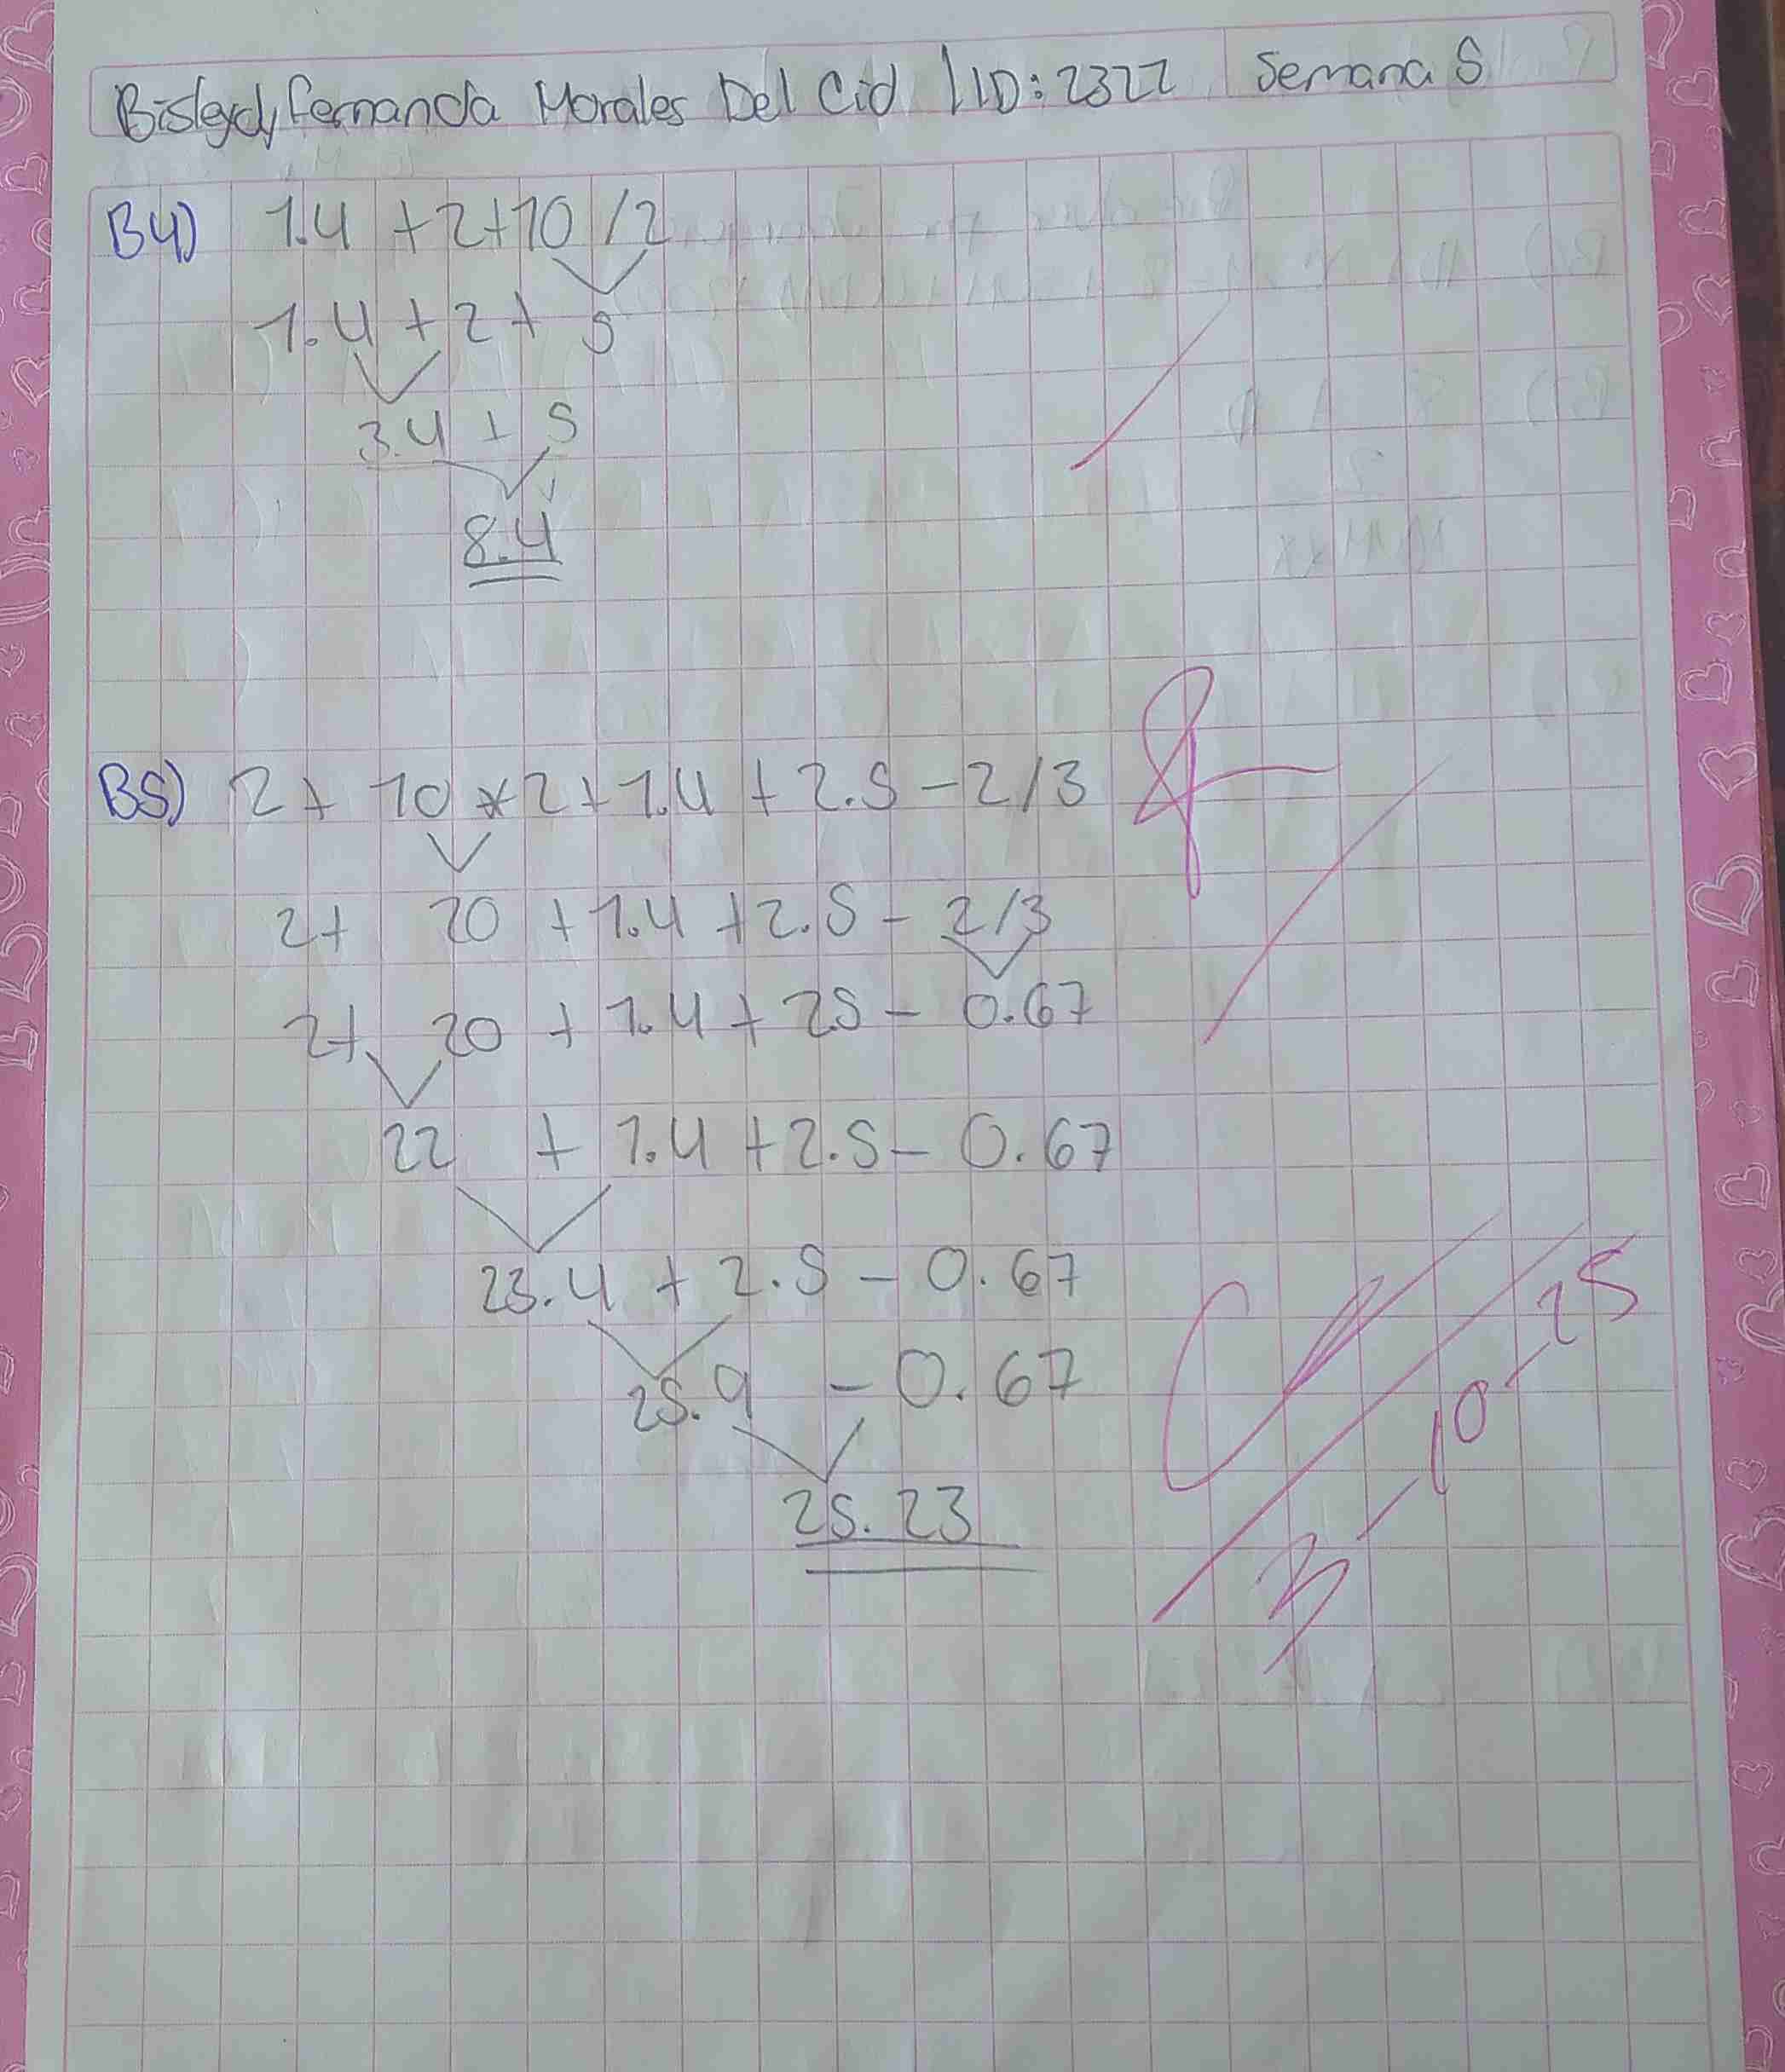 Bisleydy Fernanda Morales Del Cid | ID: 2322 Semana 5
B4) 1.4 + 2 + 10 / 2
1.4 + 2 + 5
3.4 + 5
8.4
B5) 2 + 10 * 2 + 1.4 + 2.5 - 2/3
2 + 20 + 1.4 + 2.5 - 2/3
2 + 20 + 1.4 + 25 - 0.67
22 + 1.4 + 2.5 - 0.67
23.4 + 2.5 - 0.67
25.9 - 0.67
25.23
3-10-25